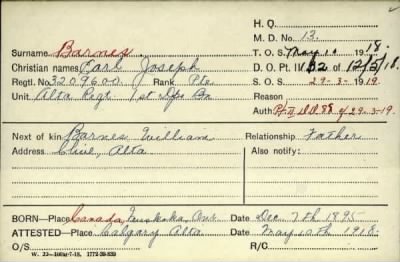 H. Q.
M. D. No. 13.
Surname Barnes. T. O. S. May 10 1918.
Christian names Earl Joseph D. O. Pt. II 62 of 12/5/18.
Regtl. No. 3209600. Rank Pte S. O. S. 29-3-1919.
Unit Alta Regt. 1st Dps Bn Reason
Auth Pt II D.O. 88 of 29-3-19.
Next of kin Barnes William Relationship Father
Address Clive, Alta. Also notify:
BORN—Place Canada, Muskoka, Ont Date Dec. 7th 1895
ATTESTED—Place Calgary Alta Date May 10th 1918.
O/S R/C